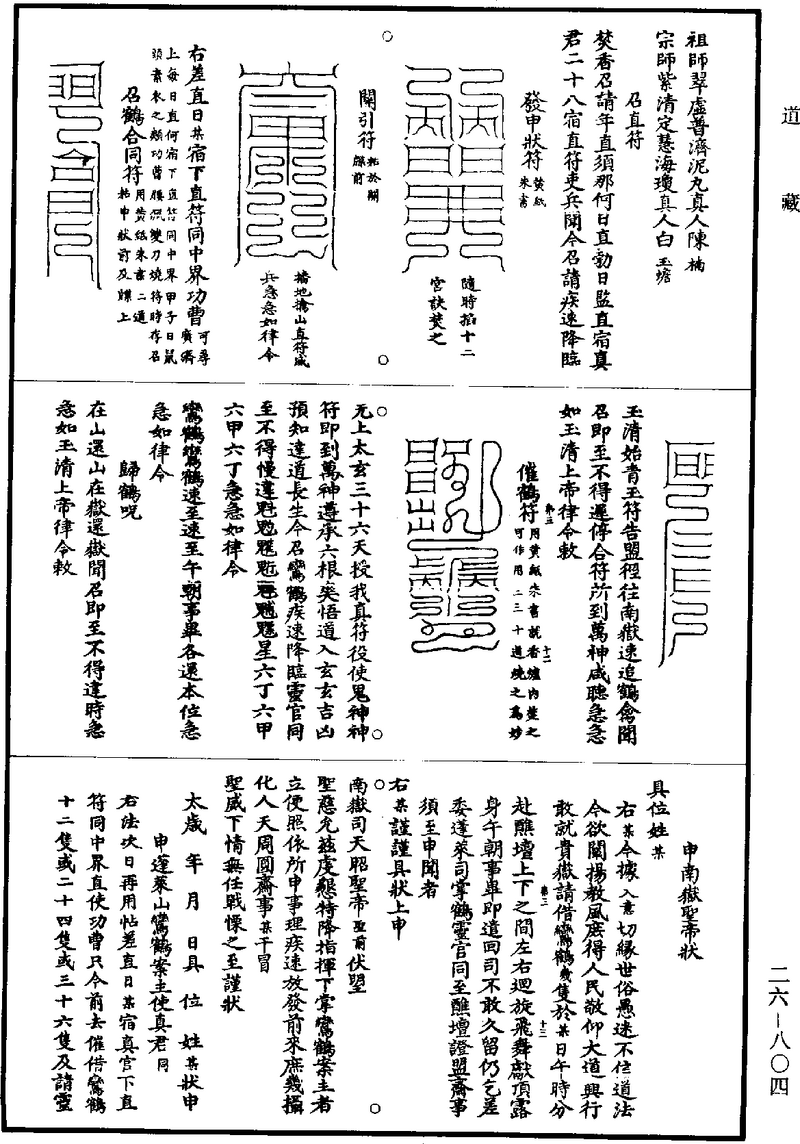 道藏
祖師翠虛普濟泥丸真人陳楠
宗師紫清定慧海瓊真人白玉蟾
召直符
焚香召請年直須那何日直勛日監直宿真
君二十八宿直符吏兵聞今召請疾速降臨
發申狀符黃紙朱書
隨時掐十二
宮訣焚之
關引符粘於關牒前
搐地攝山直符威
兵急急如律令
右差直日某宿下直符同中界功曹可尋廣濟
上每日直何宿下直符同中界甲子日鼠
頭素衣之類功曹腰佩雙刀燒符時存召
召鶴合同符用黃紙朱書二通粘申狀前及牒上
玉清始青玉符告盟徑往南嶽速追鶴禽聞
召即至不得遲停合符所到萬神咸聽急急
如玉清上帝律令敕
催鶴符用黃紙朱書就香爐內焚之可作用二三十道燒之為妙
第三
十二
无上太玄三十六天授我真符役使鬼神神
符即到萬神遵承六根爽悟道入玄玄吉凶
預知達道長生今召鸞鶴疾速降臨靈官同
至不得慢違魁䰢䰣星六丁六甲
六甲六丁急急如律令
鸞鶴鸞鶴速至速至午朝事畢各還本位急
急如律令
歸鶴呪
在山還山在嶽還嶽聞召即至不得違時急
急如玉清上帝律令敕
申南嶽聖帝狀
具位姓某
右某今據入意切緣世俗愚迷不信道法
今欲闡揚教風庶得人民敬仰大道興行
敢就貴嶽請借鸞鶴幾隻於某日午時分
第三
十三
赴醮壇上下之間左右迴旋飛舞獻頂露
身午朝事畢即遣回司不敢久留仍乞差
委蓬萊司掌鶴靈官同至醮壇證盟齋事
須至申聞者
右某謹謹具狀上申
南嶽司天昭聖帝聖前伏望
聖慈允茲虔懇特降指揮下掌鸞鶴案主者
立便照依所申事理疾速放發前來庶幾攝
化人天周圓齋事某干冒
聖威下情無任戰慄之至謹狀
太歲年月日具位姓某狀申
申蓬萊山鸞鶴案主使真君同
右法次日再用帖差直日某宿真宮下直
符同中界直使功曹只今前去催借鸞鶴
十二隻或二十四隻或三十六隻及請靈
二六—八〇四